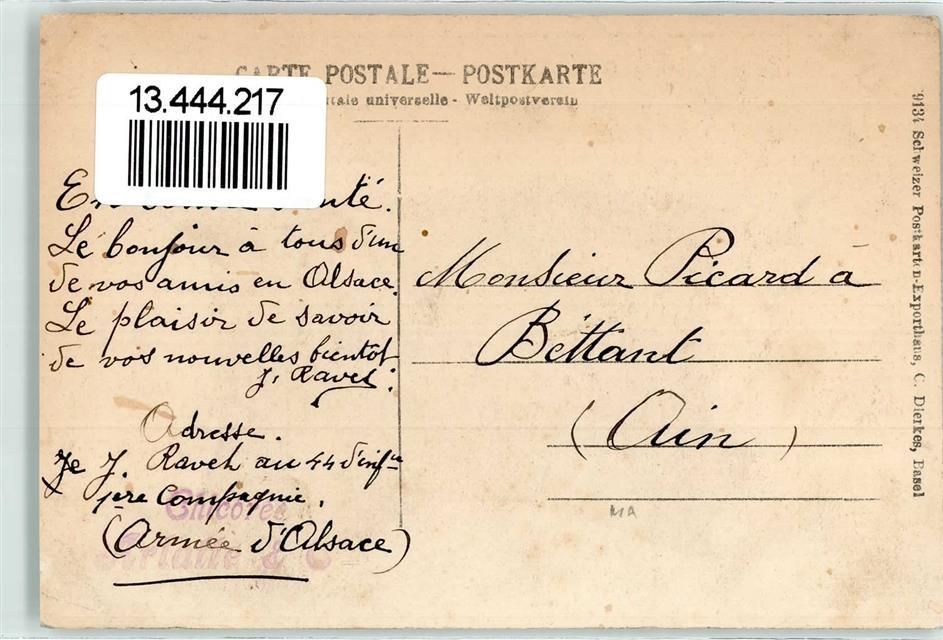 CARTE POSTALE — POSTKARTE
universelle - Weltpostverein
13.444.217
santé.
Le bonjour à tous d'un
de vos amis en Alsace.
Le plaisir de savoir
de vos nouvelles bientôt
J. Ravet
Adresse.
J. Ravet au 44 d'inf^ie
1ere Compagnie.
(Armée d'Alsace)
Chicorée
Monsieur Picard à
Bettant
(Ain)
MA
9134 Schweizer Postkarten-Exporthaus, C. Dierkes, Basel